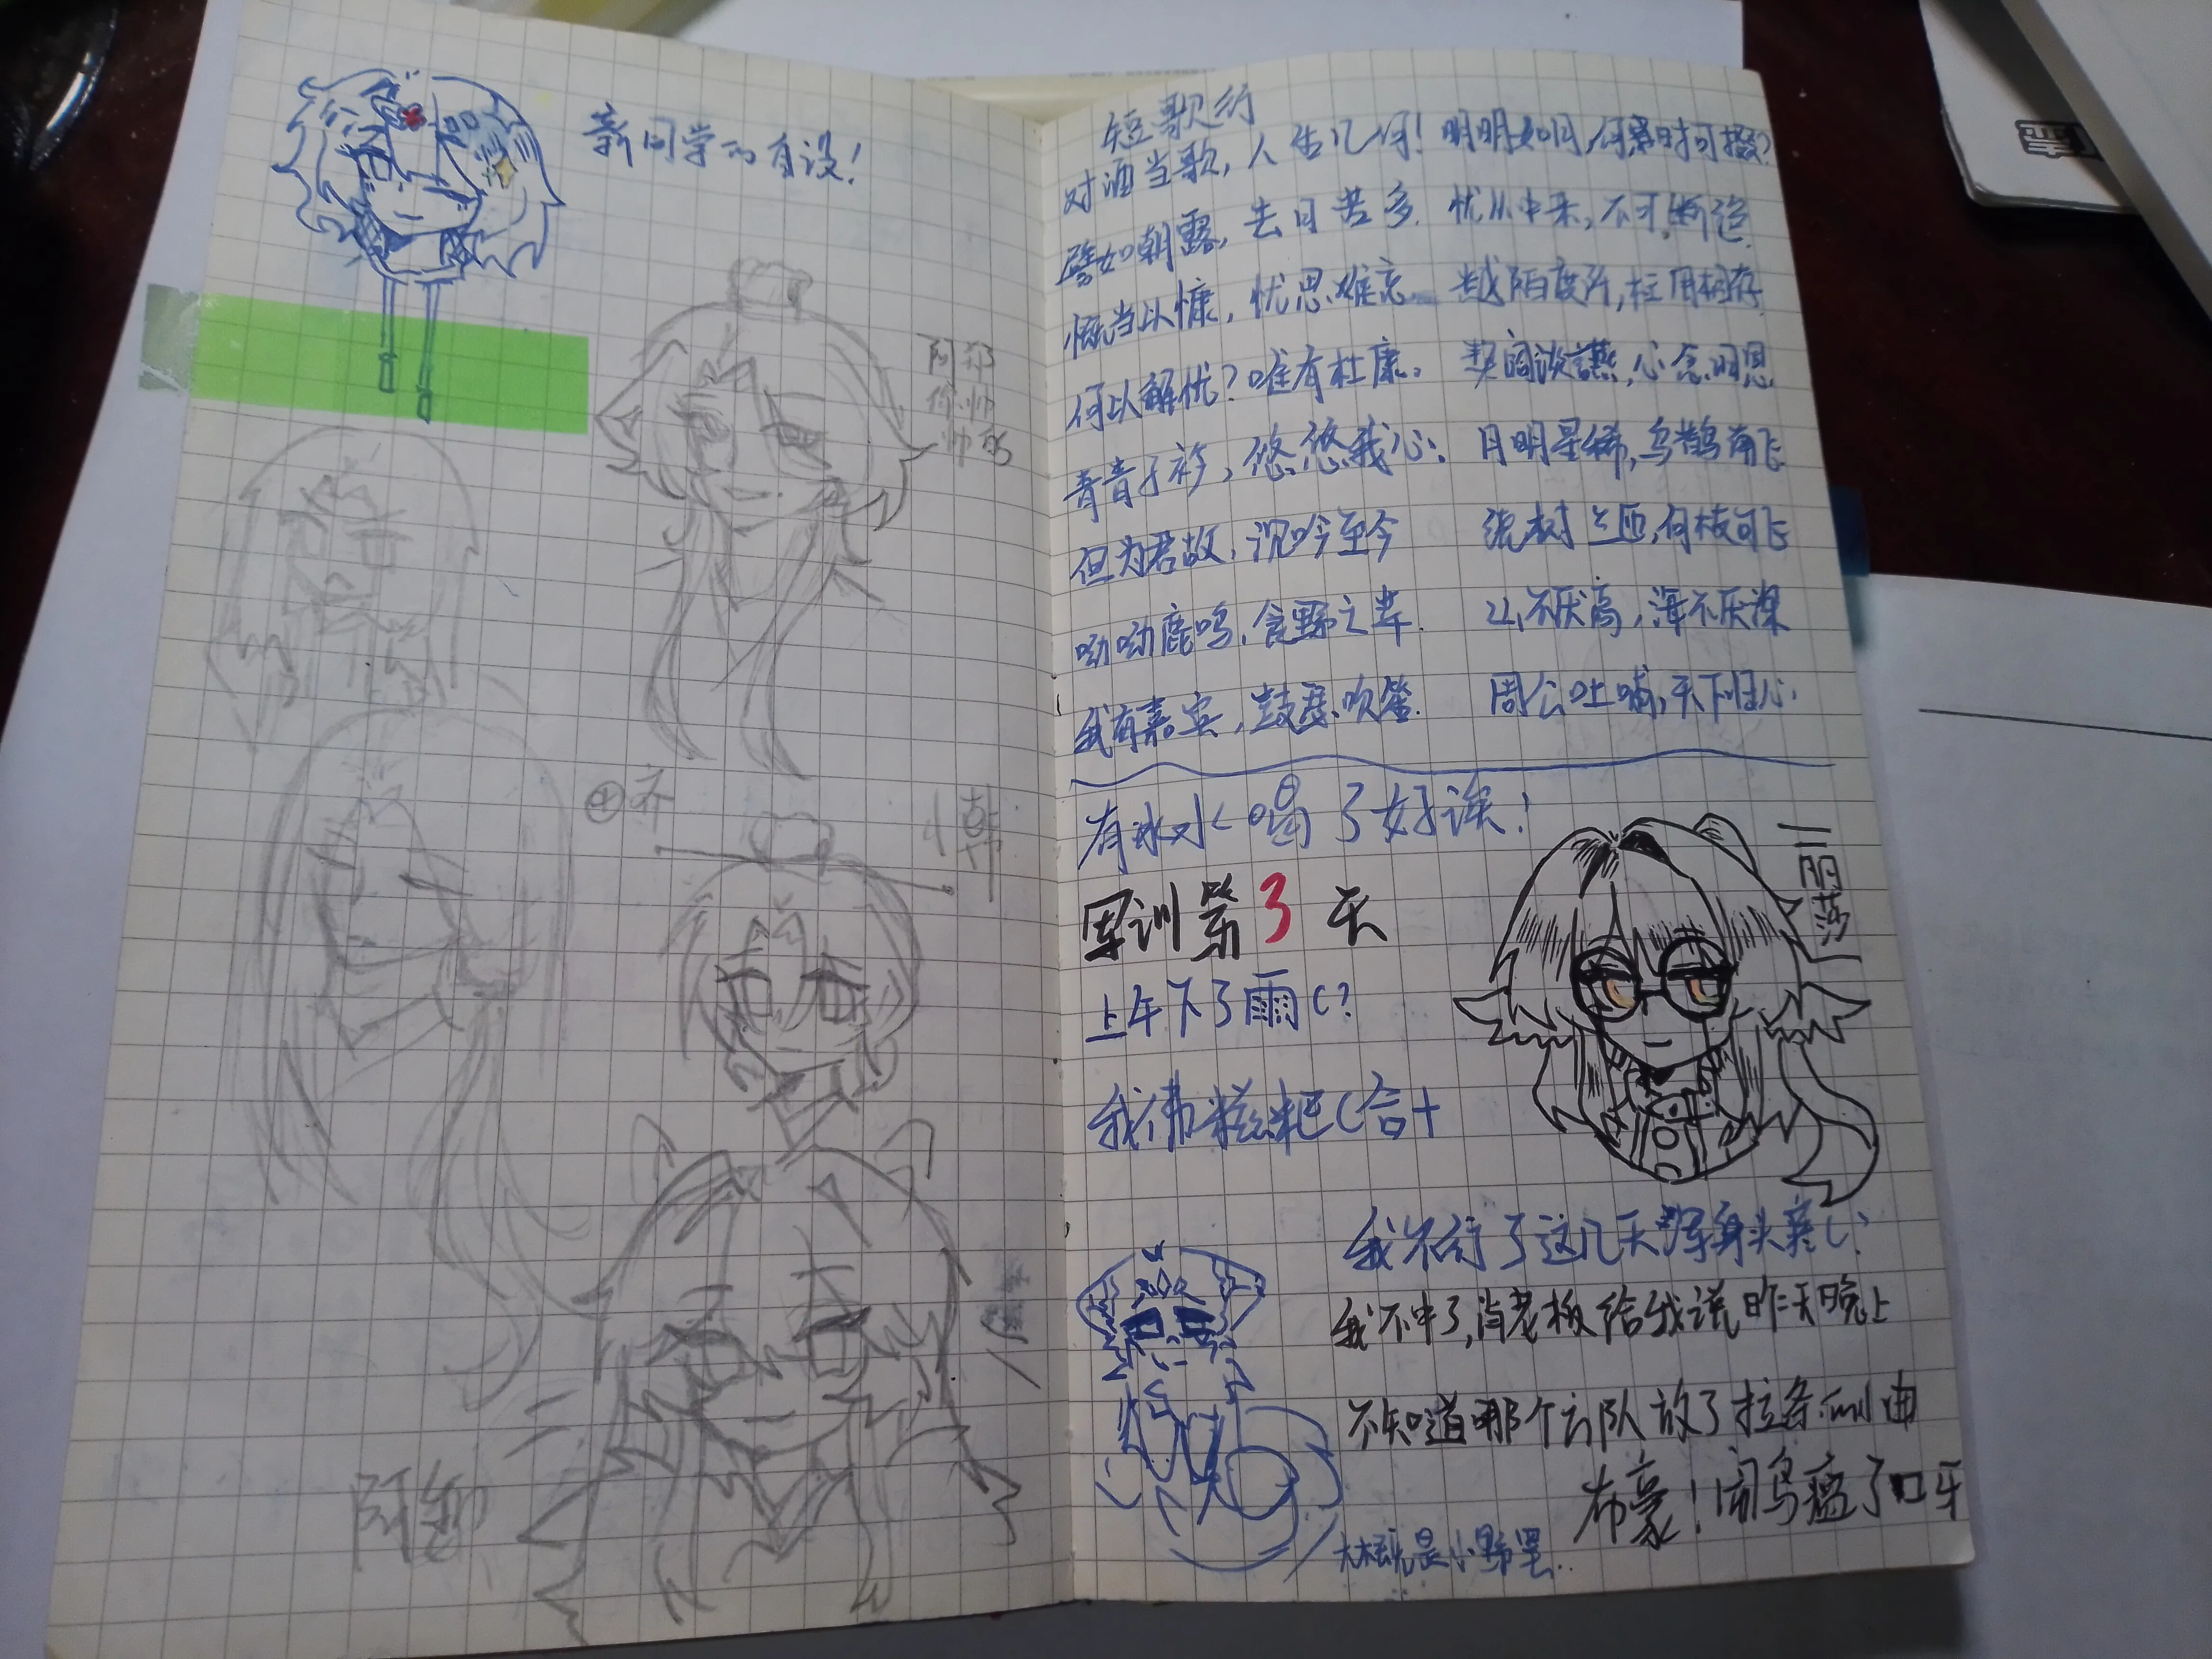 新同学的自设！
阿祁
你帅
帅的
齐
韩
阿卸
短歌行
对酒当歌，人生几何！ 明明如月，何时可掇？
譬如朝露，去日苦多. 忧从中来，不可断绝.
慨当以慷，忧思难忘. 越陌度阡，枉用相存.
何以解忧？唯有杜康。 契阔谈讌，心念旧恩
青青子衿，悠悠我心. 月明星稀，乌鹊南飞
但为君故，沉吟至今 绕树三匝，何枝可飞
呦呦鹿鸣，食野之苹. 山不厌高，海不厌深
我有嘉宾，鼓瑟吹笙. 周公吐哺，天下归心.
有冰水喝了好诶！
军训第3天
上午下了雨（？
我得糍粑（合十
二丽莎
我不行了这几天浑身头疼（？
我不中了，肖老板给我说昨天晚上
不知道哪个方队放了拉条
布豪！闹鸟瘟了口牙
大概是小